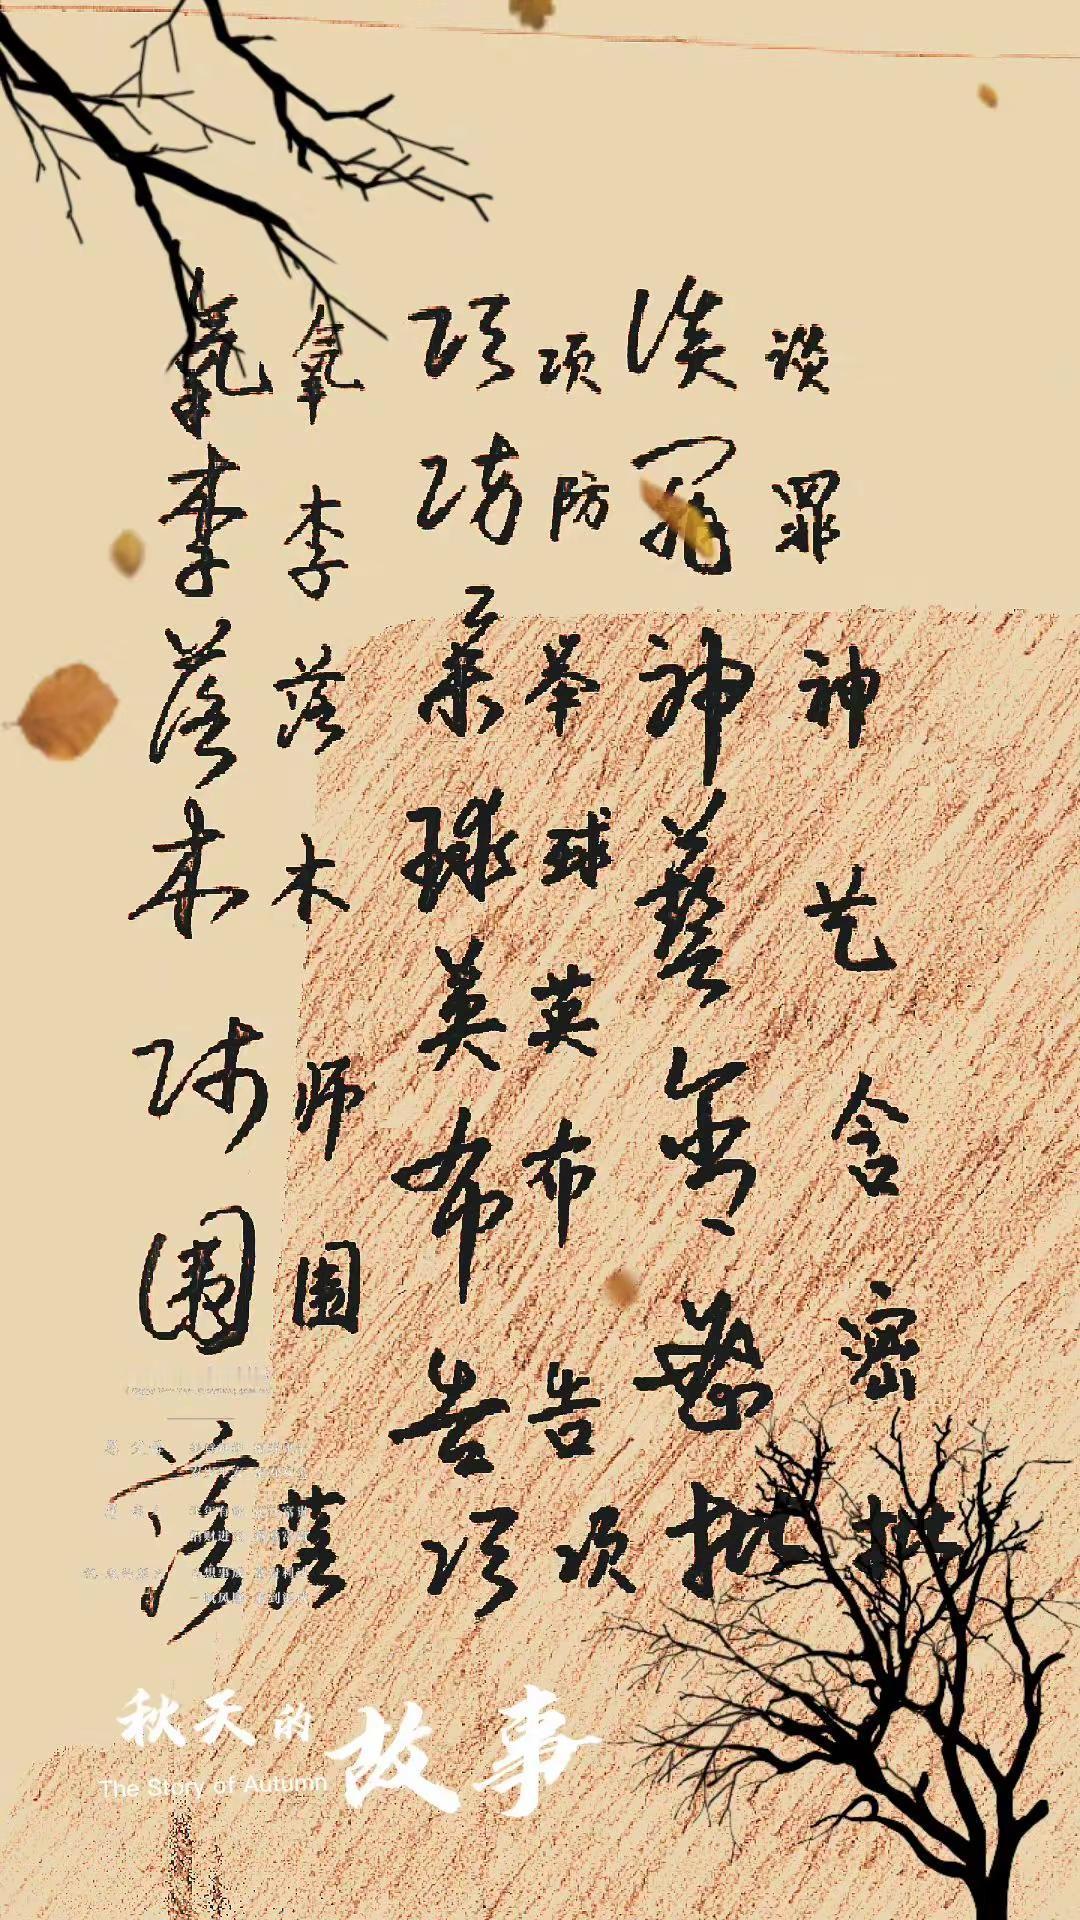 谈 罪 神 艺 含 密 批
谈 罪 神 藝 含 密 批
项 防 举 球 英 布 告 项
项 防 举 球 英 布 告 项
氧 李 落 木 师 围 落
氣 李 落 木 师 围 落
秋天的故事
The Story of Autumn